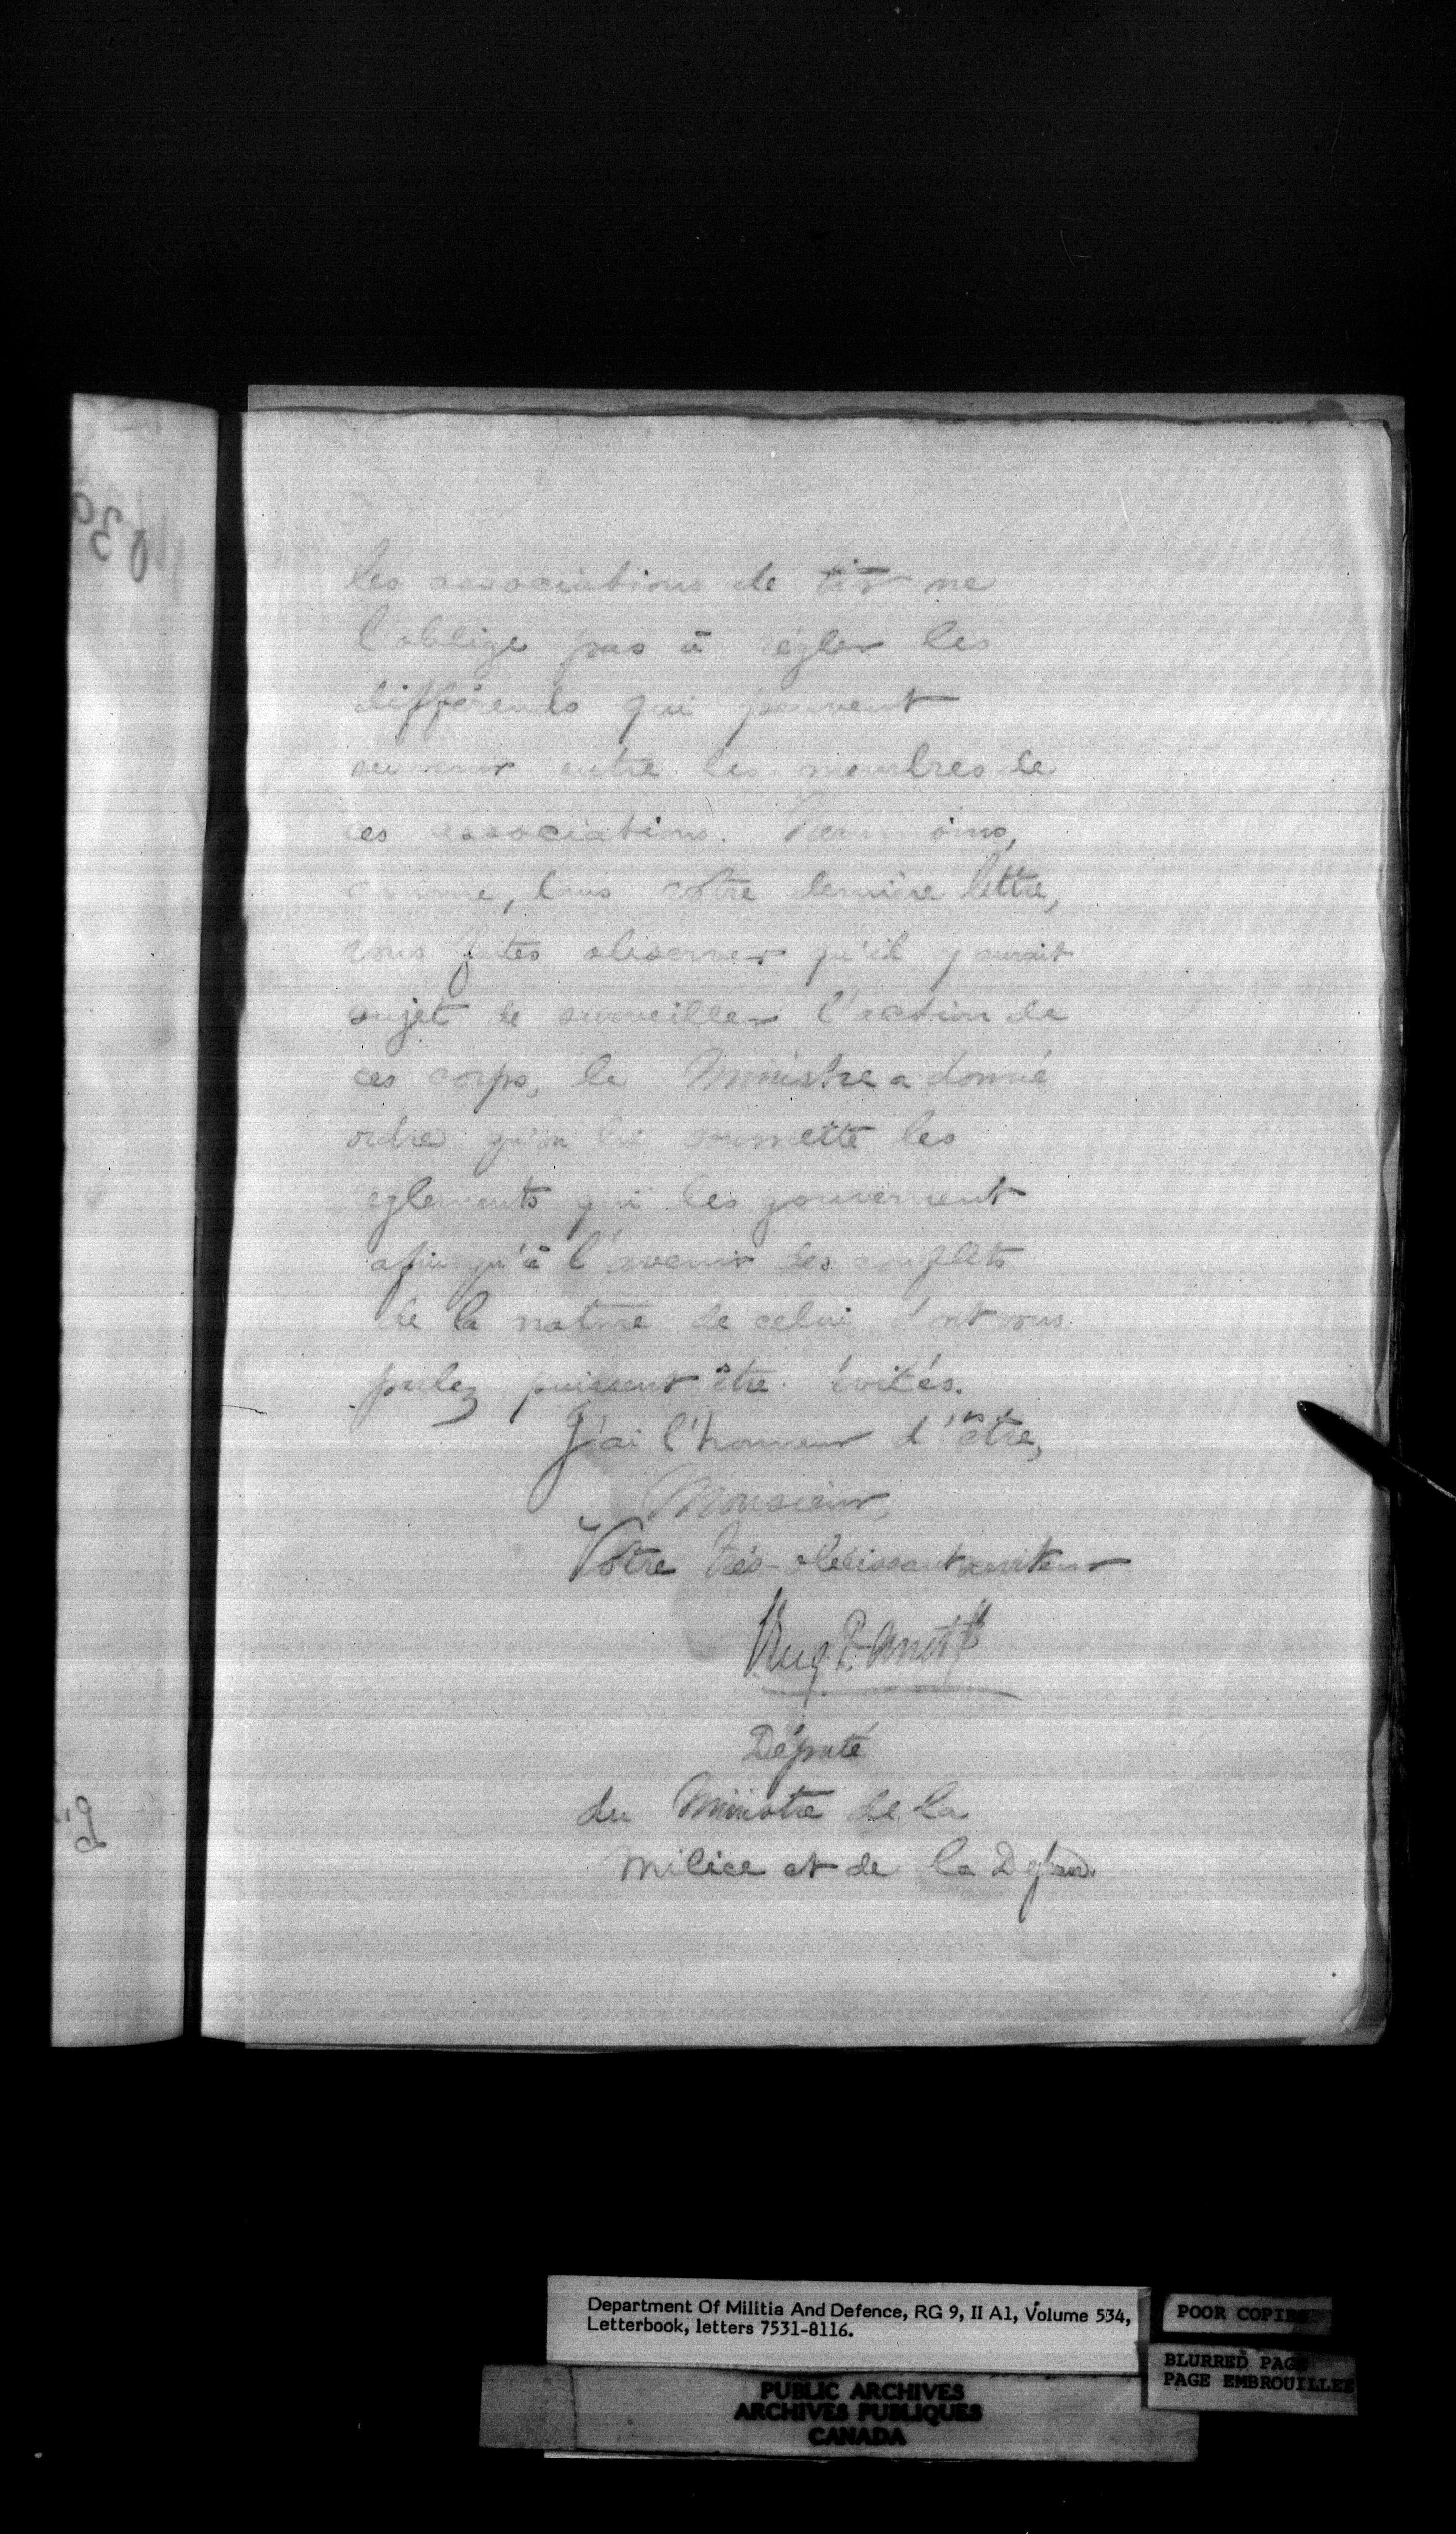 les associations de tir ne
l'oblige pas à régler les
différends qui peuvent
survenir entre les membres de
ces associations. Néanmoins,
comme, dans votre dernière lettre,
vous faites observer qu'il y aurait
sujet de surveiller l'action de
ces corps, le Ministre a donné
ordre qu'on lui soumette les
règlements qui les gouvernent
afin qu'à l'avenir des conflits
de la nature de celui dont vous
parlez puissent être évités.
J'ai l'honneur d'être,
Monsieur,
Votre très-obéissant serviteur
Député
du Ministre de la
Milice et de la
Department Of Militia And Defence, RG 9, II A1, Volume 534,
Letterbook, letters 7531-8116.
POOR COPIES
BLURRED PAGE
PAGE EMBROUILLEE
PUBLIC ARCHIVES
ARCHIVES PUBLIQUES
CANADA